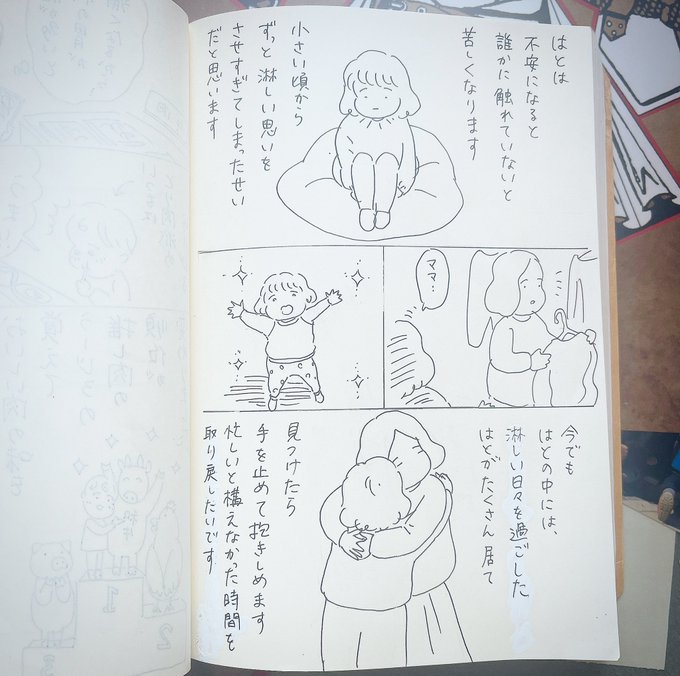 はとは
不安になると
誰かに触れていないと
苦しくなります
小さい頃から
ずっと淋しい思いを
させすぎてしまったせい
だと思います
ママ…
今でも
はとの中には、
淋しい日々を過ごした
はとがたくさん居て
見つけたら
手を止めて抱きしめます
忙しいと構えなかった時間を
取り戻したいです
1
2